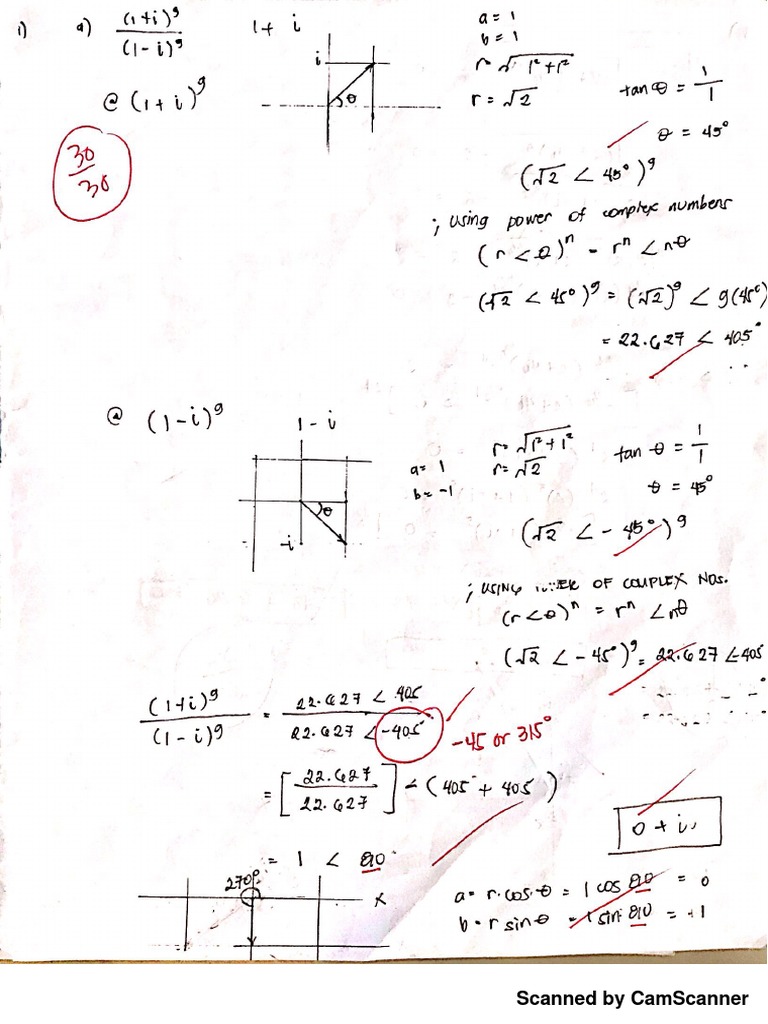 1) a) (1+i)⁹ / (1-i)⁹
1 + i
a = 1
b = 1
r = √1² + 1²
r = √2
i
θ
tan θ = 1/1
θ = 45°
@ (1+i)⁹
30/30
(√2 < 45°)⁹
; using power of complex numbers
(r < θ)ⁿ = rⁿ < nθ
(√2 < 45°)⁹ = (√2)⁹ < 9(45°)
= 22.627 < 405°
@ (1-i)⁹
1 - i
a = 1
b = -1
r = √1² + 1²
r = √2
tan θ = 1/1
θ = 45°
θ
-i
(√2 < -45°)⁹
; USING OF COMPLEX NOS.
(r < θ)ⁿ = rⁿ < nθ
(√2 < -45°)⁹ = 22.627 < -405
(1+i)⁹ / (1-i)⁹ = 22.627 < 405 / 22.627 < -405
-45 or 315°
= [22.627 / 22.627] < (405 + 405)
0 + i
= 1 < 810
270°
x
a = r cos θ = 1 cos 810 = 0
b = r sin θ = 1 sin 810 = +1
Scanned by CamScanner